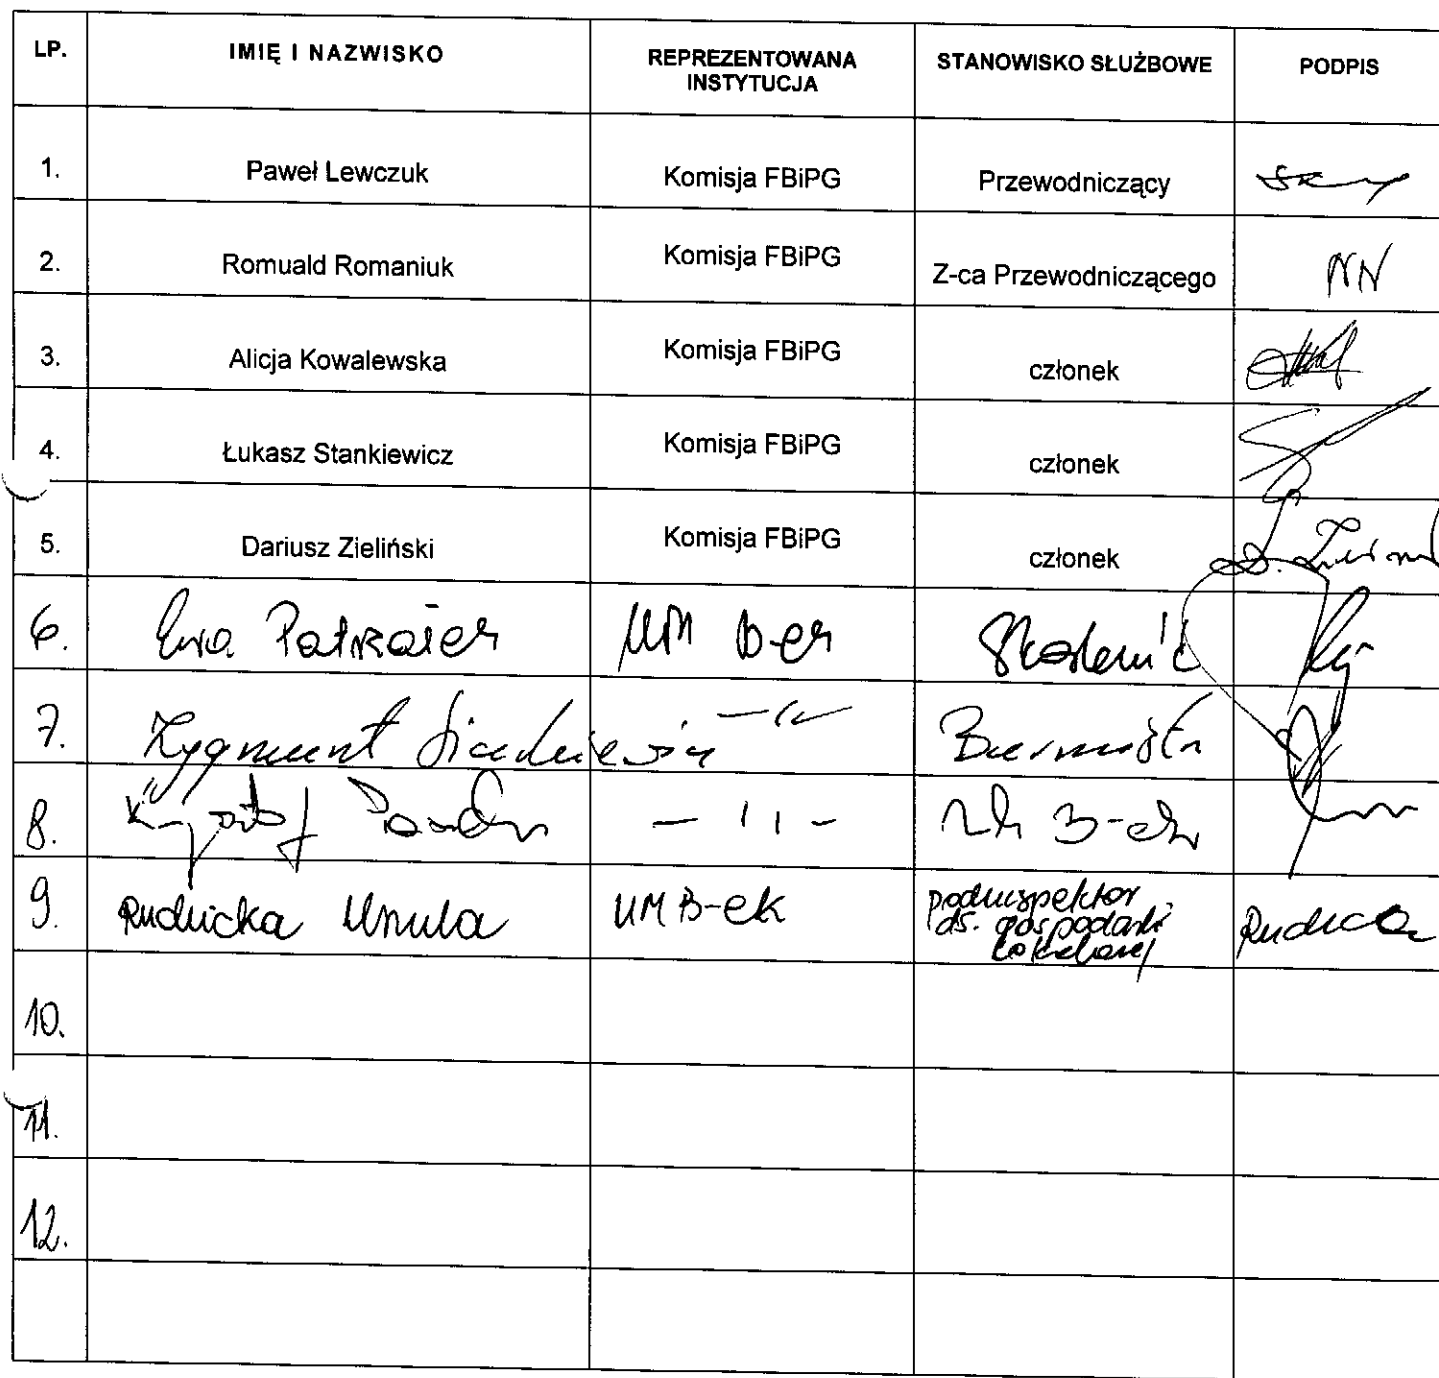 LP. IMIĘ I NAZWISKO REPREZENTOWANA INSTYTUCJA STANOWISKO SŁUŻBOWE PODPIS
1. Paweł Lewczuk Komisja FBiPG Przewodniczący
2. Romuald Romaniuk Komisja FBiPG Z-ca Przewodniczącego NN
3. Alicja Kowalewska Komisja FBiPG członek
4. Łukasz Stankiewicz Komisja FBiPG członek
5. Dariusz Zieliński Komisja FBiPG członek
6. Ewa UM Skarbnik
7. Zygmunt -11- Burmistrz
8. - 11 -
9. Rudnicka Urszula UM B-ek podinspektor
ds. gospodarki
lokalowej Rudnicka
10.
11.
12.